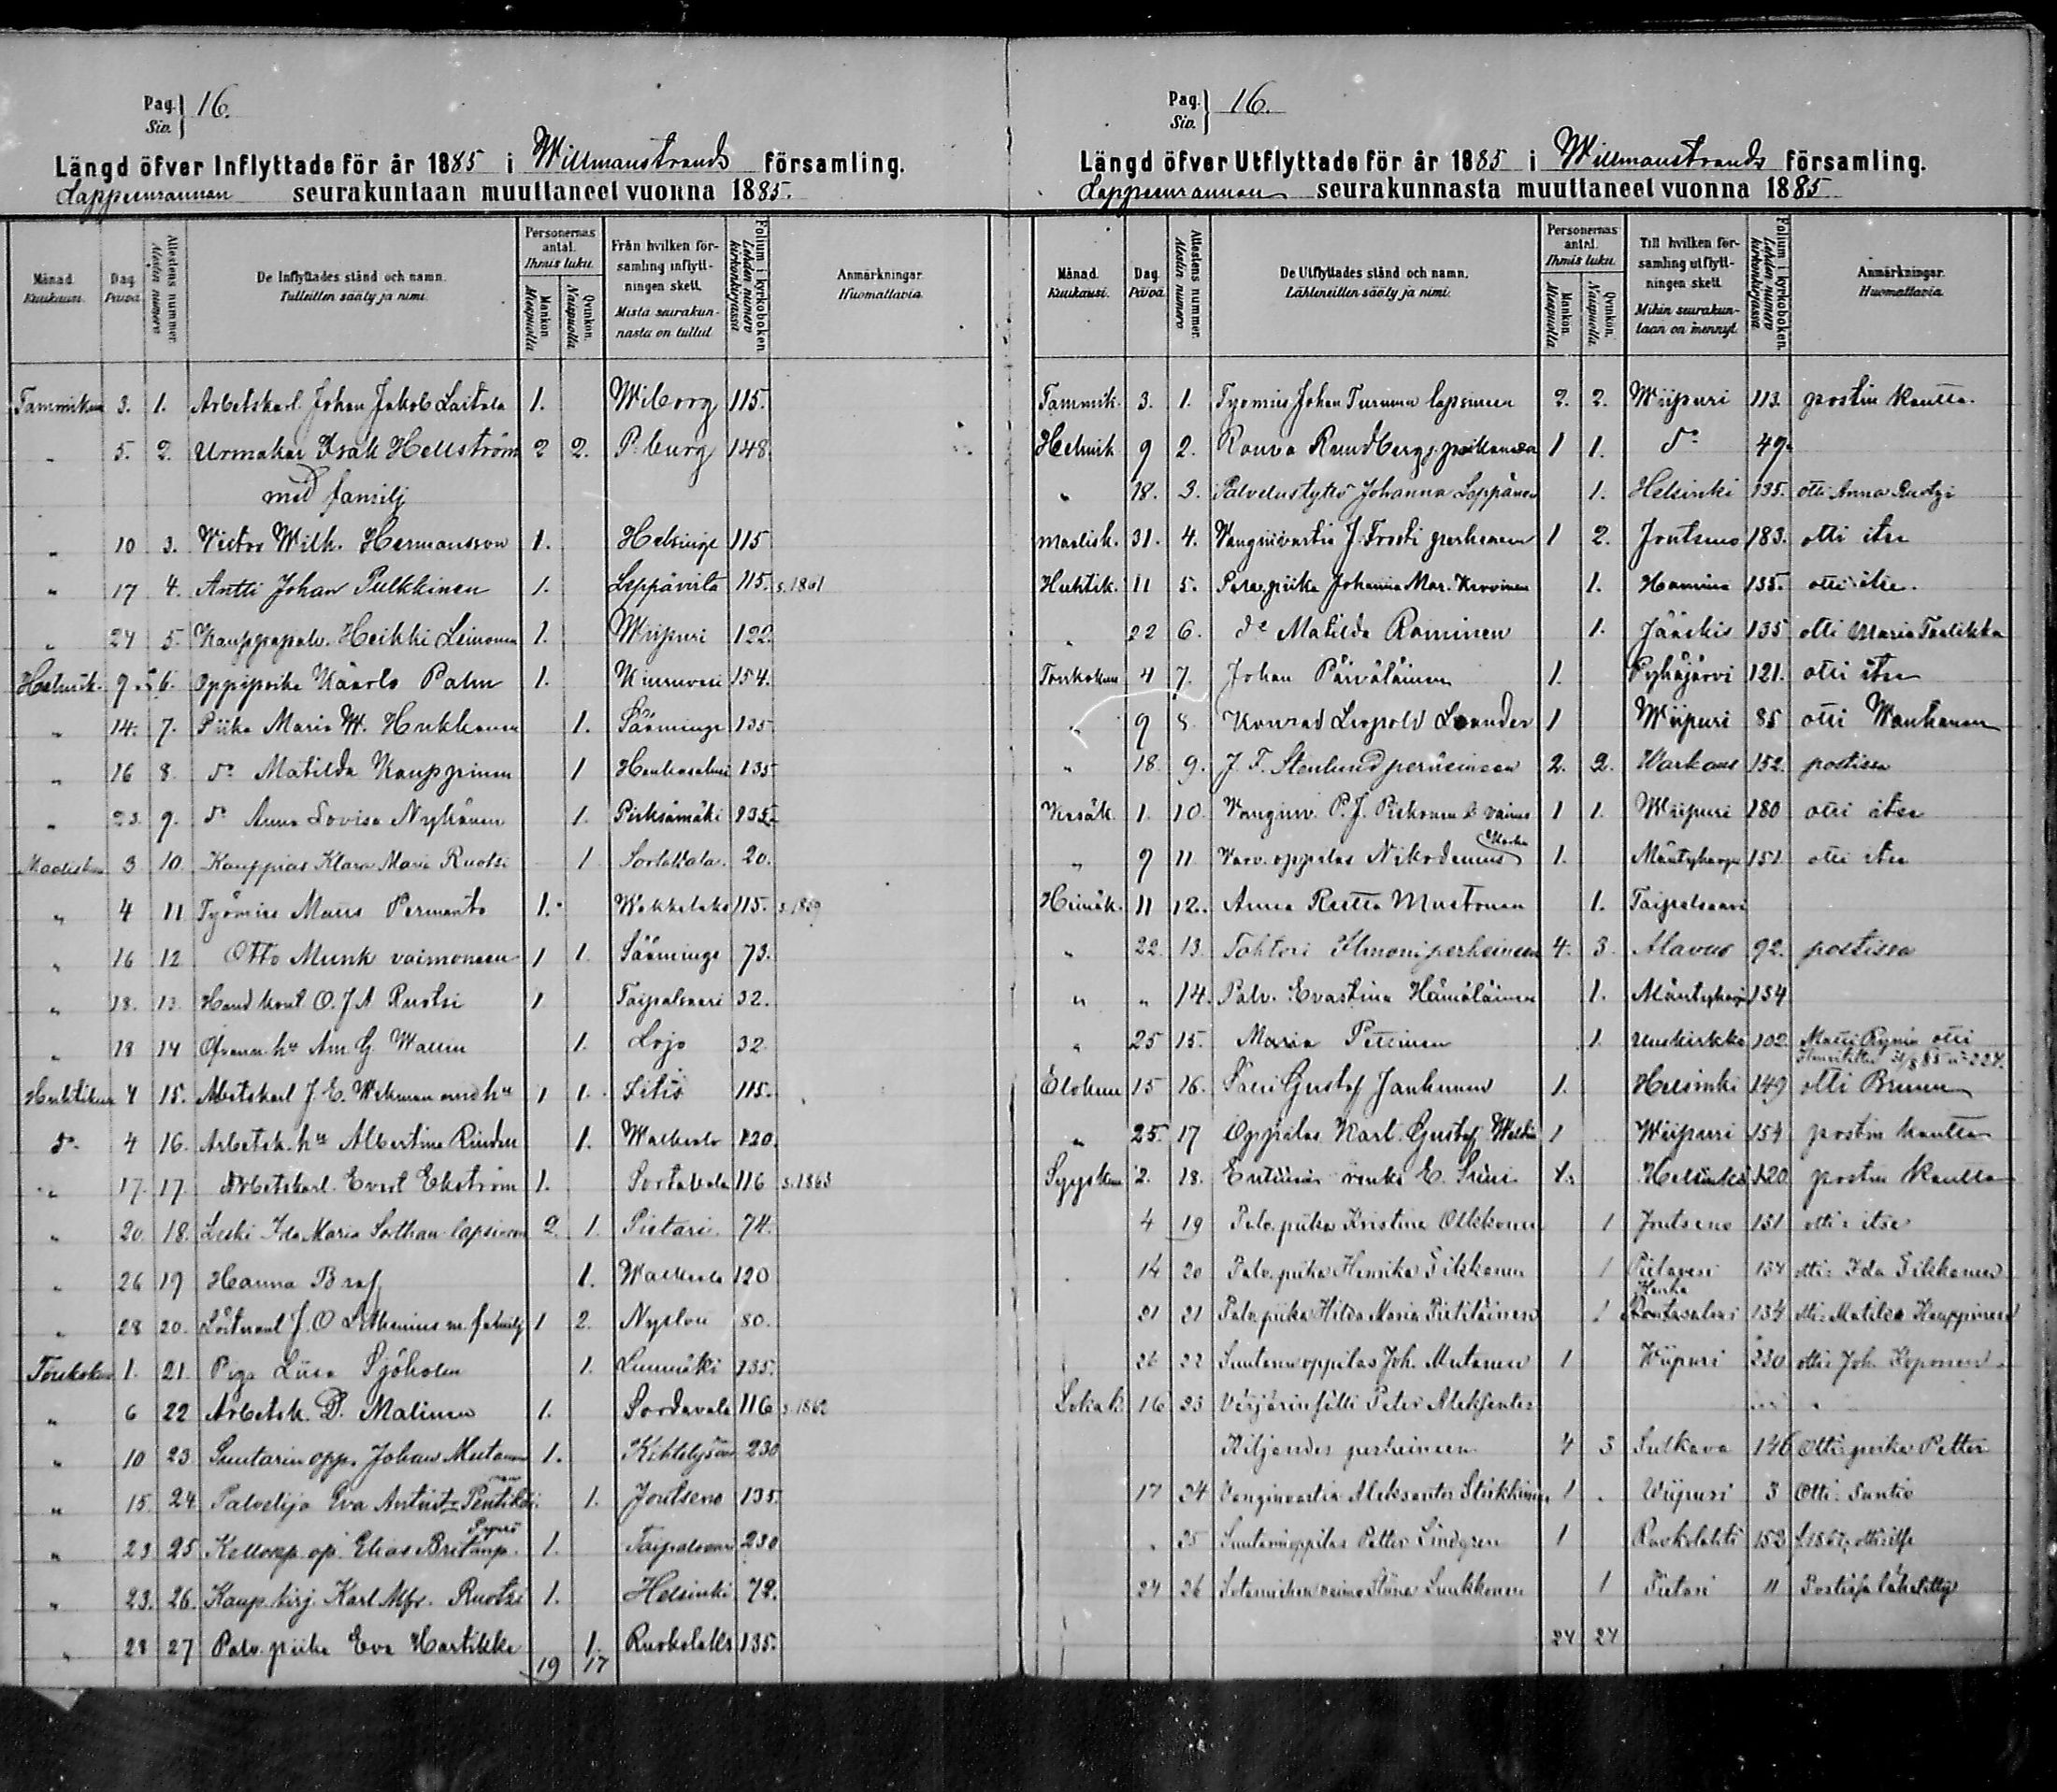 Pag. Siv. 16.
Längd öfver Inflyttade för år 1885 i Willmanstrands församling.
Lappeenrannan seurakuntaan muuttaneet vuonna 1885.
Månad. Kuukausi.
Dag. Päivä.
Attestens nummer. Alestin numero
De Inflyttades stånd och namn. Tulleitten sääty ja nimi.
Personernas antal. Ihmis luku.
Mankön. Miespuolia
Qvinkön. Naispuolia
Från hvilken församling inflyttningen skett. Mistä seurakunnasta on tullut
Folium i kyrkoboken. Lehden numero kirkonkirjassa
Anmärkningar. Huomattavia.
Tammikuu 3. 1. Arbetskarl Johan Jakob Laitala 1. Wiborg 115.
" 5. 2. Urmakar Isak Hellström 2 2. P.burg 148
med familj
" 10 3. Victor Wilh. Hermansson 1. Helsinge 115
" 17 4. Antti Johan Pulkkinen 1. Leppävirta 115. s. 1861
" 24 5. Kauppapalv. Heikki Leinonen 1. Wiipuri 122
Helmik. 9 6. Oppipoika Kaarlo Palm 1. 154.
" 14. 7. Piika Maria W. 1. Sääminge 135
" 16 8. d:o Matilda Kauppinen 1 Hankasalmi 135
" 23. 9. d:o Anna Lovisa Nykänen 1. Pieksämäki 135
Maalisk. 3 10. Kauppias Klara Maria Ruotsi 1 Sortavala. 20.
" 4 11 Työmies Maus Permanto 1. 115. s. 1869
" 16 12 Otto Munk vaimoneen 1 1. Sääminge 73.
" 18. 13. O. J. A. Ruotsi 1 Taipalsaari 32.
" 18 14 Wallin 1. Lojo 32.
Huhtikuu 4 15. Arbetskarl J. E. Wekman med hu 1 1. 115.
d:o 4 16. Arbetsk. hu Albertina 1. Walkeala 120.
" 17. 17. Arbetskarl Evert Ekström 1. Sortavala 116 s. 1863
" 20. 18. Leski Ida Maria lapsineen 2. 1. Pietari. 74.
" 26 19 Hanna Braf 1. Walkeala 120
" 28 20. J. O. m. familj 1 2. Nyslott 80.
Toukokuu 1. 21. Piga Liisa Sjöholm 1. Luumäki 135.
" 6 22 Arbetsk. P. Malinen 1. Sordavala 116 s. 1862
" 10 23. Suutarin opp. Johan Mutanen 1. 230
" 15. 24. Palvelija Eva 1. Joutseno 135.
" 23 25 op. Elias 1. Taipalsaari 230
" 23. 26. Kaup. kirj. Karl Alfr. Ruotsi 1. Helsinki 72.
" 28 27 Palv. piika Eva Hartikka 1. Ruokolahti 135.
19 17
Pag. Siv. 16.
Längd öfver Utflyttade för år 1885 i Willmanstrands församling.
Lappeenrannan seurakunnasta muuttaneet vuonna 1885
Månad. Kuukausi.
Dag. Päivä.
Attestens nummer. Alestin numero
De Utflyttades stånd och namn. Lähteneitten sääty ja nimi.
Personernas antal. Ihmis luku.
Mankön. Miespuolia
Qvinkön. Naispuolia.
Till hvilken församling utflyttningen skett. Mihin seurakuntaan on mennyt.
Folium i kyrkoboken. Lehden numero kirkonkirjassa
Anmärkningar. Huomattavia.
Tammik. 3. 1. Työmies Johan Turunen lapsineen 2. 2. Wiipuri 113. postin kautta.
Helmik 9 2. Rouva Rundberg poikansa 1 1. d:o 49.
" 18. 3. Palvelustyttö Johanna Leppänen 1. Helsinki 135. otti Anna Ruotzi
Maalisk. 31. 4. Wanginvartia J. Frosti perheineen 1 2. Joutseno 183. otti itse
Huhtik. 11 5. Palv. piika Johanna Mar. 1. Hamina 135. otti itse.
" 22 6. d:o Matilda Rominen 1. Jääskis 135 otti Maria Taalikka
Toukokuu 4 7. Johan Pärväläinen 1. Pyhäjärvi 121. otti itse
" 9 8. Konrad Leopold Leander 1 Wiipuri 85 otti Wanhanen
" 18. 9. J. F. Stenlund perheineen 2. 2. Warkaus 152. postissa
Kesäk. 1. 10. Wanginv. P. J. Pirhonen & vaimo 1 1. Wiipuri 180 otti itse
" 9 11 oppilas Nikodemus 1. Mäntyharju 151 otti itse
Heinäk. 11 12. Anna Reetta Mustonen 1. Taipalsaari
" 22. 13. Tohtori Ilmoni perheineen 4. 3. Alavus 92. postissa
" " 14. Palv. Evastina Hämäläinen 1. Mäntyharju 154
" 25 15. Maria Pettinen 1. Uusikirkko 102. Matti otti
Elokuu 15 16. Gustaf Jankunen 1. Helsinki 149 otti Brunn
" 25. 17 Oppilas Karl Gustaf 1 Wiipuri 154 postin kautta
Syyskuu 2. 18. Entinen renki E. 1. Helsinki 120 postin kautta
4 19 Palv. piika Kristina Olkkonen 1 Joutseno 131 otti: itse
14 20 Palv. piika Henrika Tikkanen 1 Pielavesi 134 otti: Ida Tikkanen
21 21 Palv. piika Hilda Maria Pietiläinen 1 Hankasalmi 134 otti: Matilda Kauppinen
26 22 Suutarinoppilas Joh. Mutanen 1 Wiipuri 230 otti: Joh. Koponen
Lokak. 16 23 Värjärinsälli Peter Aleksanter
Kiljander perheineen 4 3 Sulkava 146 Otti: poika Petter
17 24 Vanginvartia Aleksanter 1 Wiipuri 3 Otti: Suntio
" 25 Suutarinoppilas Petter Lindgren 1 Ruokolahti 152
24 26 Sotamiehen vaimo Stiina Luukkonen 1 Pietari 11 Postissa lähetetty
24 24